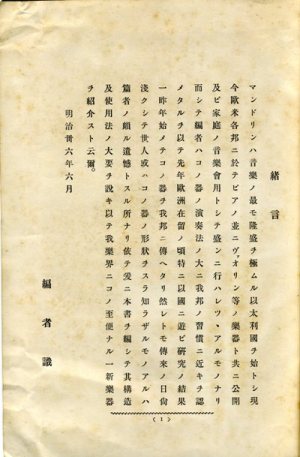 緒言
マンドリンハ音樂ノ最モ隆盛ヲ極ムル以太利國ヲ始トシ現
今歐米各邦ニ於テピアノ並ニヴァオリン等ノ樂器ト共ニ公開
及ビ家庭ノ音樂會用トシテ盛ンニ行ハレツヽアルモノナリ
而シテ編者ハコノ器ノ演奏法ノ大ニ我邦ノ習慣ニ近キヲ認
メタルヲ以テ先年歐洲在留ノ頃特ニ以國ニ遊ビ研究ノ結果
一昨年始メテコノ器ヲ我邦ニ傳ヘタリ然レトモ傳來ノ日尙
淺クシテ世人或ハコノ器ノ形狀ヲスラ知ラザルモノアルハ
篇者ノ頗ル遺憾トスル所ナリ依テ爰ニ本書ヲ編シテ其構造
及使用法ノ大要ヲ說キ以テ我樂界ニコノ至便ナル一新樂器
ヲ紹介スト云爾。
明治卅六年六月
編者識
(1)